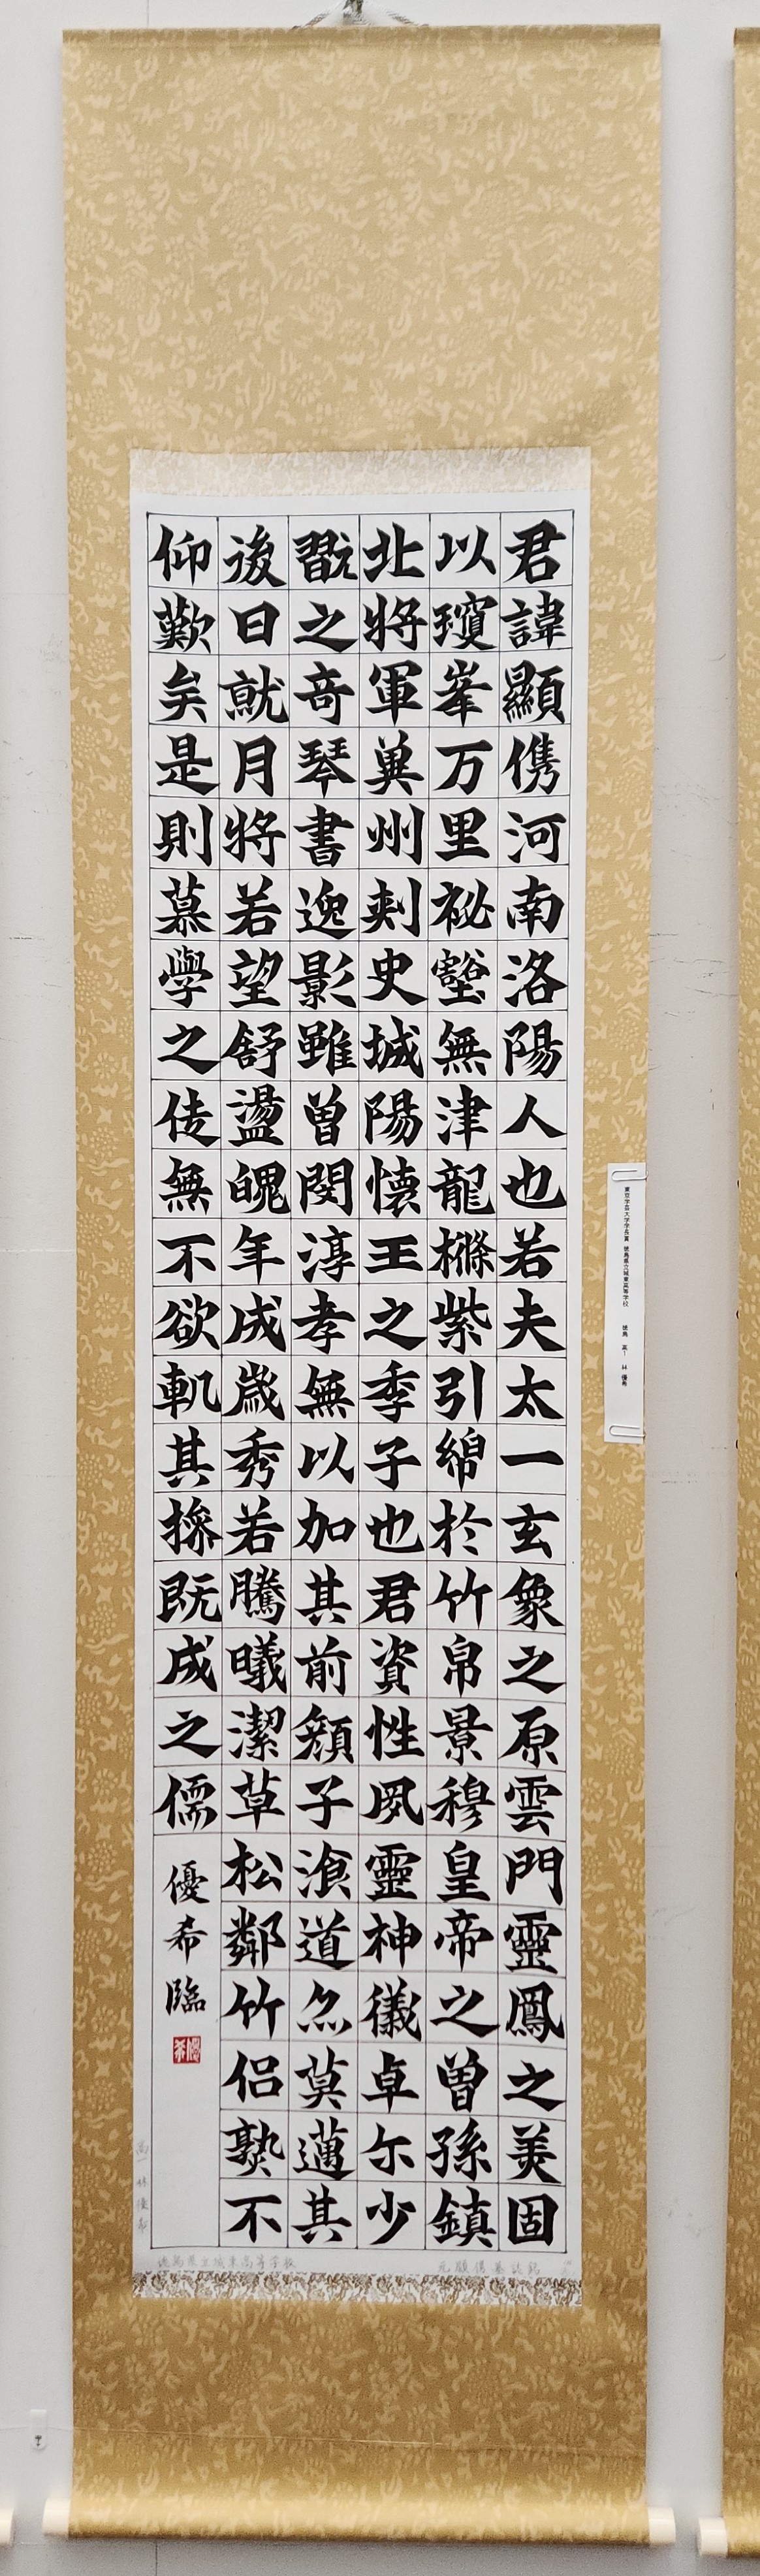 君諱顯儁河南洛陽人也若夫太一玄象之原雲門靈鳳之美固
以瓊峯万里祕壑無津龍樤紫引綿於竹帛景穆皇帝之曽孫鎮
北將軍冀州刺史城陽懷王之季子也君資性夙靈神儀卓尒少
翫之奇琴書逸影雖曽閔淳孝無以加其前顏子湌道亦莫邁其
後日就月將若望舒盪魄年成歲秀若騰曦潔草松鄰竹侶熟不
仰歎矣是則慕學之徒無不欲軌其操既成之儒
優希臨
東京学芸大学学長賞 徳島県立城東高等学校 徳島 高一 林優希
徳島県立城東高等学校
元顯儁墓誌銘
高一 林優希